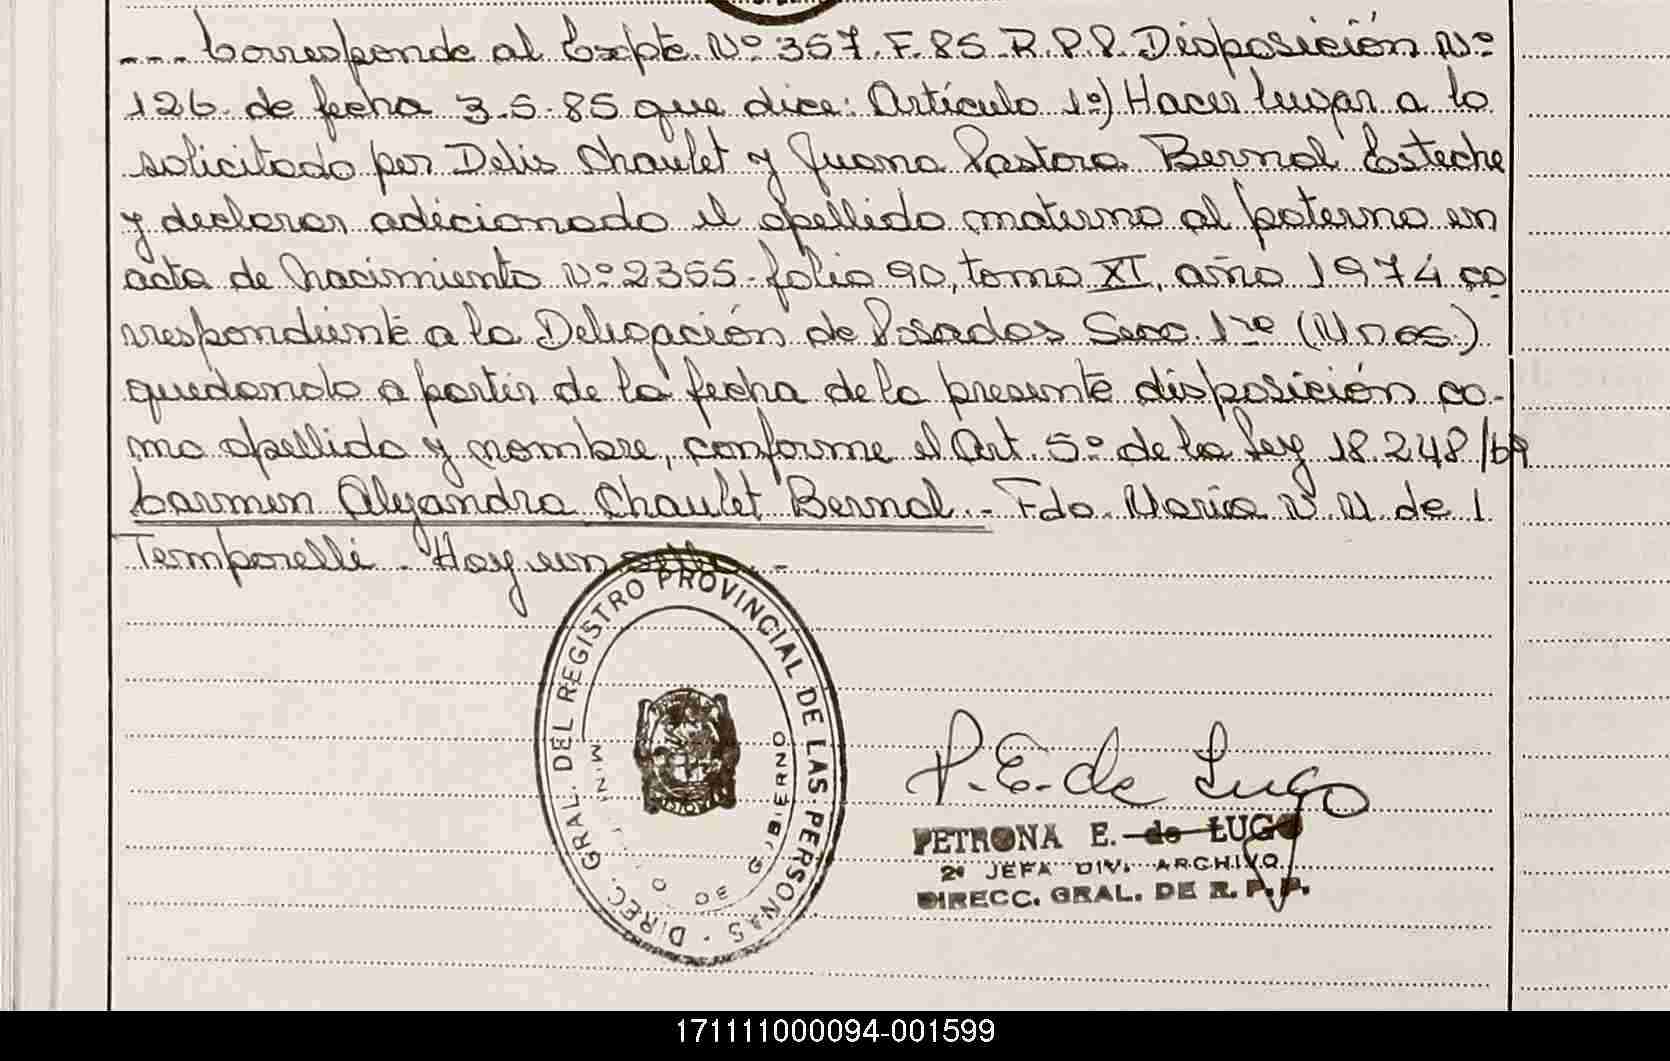 --- Corresponde al Expte. Nº 357. F. 85. R.P.P. Disposición Nº
126. de fecha 3.5.85 que dice: Artículo 1º) Hacer lugar a lo
solicitado por Delis Chaulet y Juana Pastora Bernal Esteche
y declarar adicionado el apellido materno al paterno en
acta de Nacimiento Nº 2355 - folio 90, tomo XI, año 1974 co
rrespondiente a la Delegación de Posadas Secc. 1ra (Mnes.)
quedando a partir de la fecha de la presente disposición co-
mo apellido y nombre, conforme el Art. 5º de la Ley 18.248/69
Carmen Alejandra Chaulet Bernal.- Fdo. Maria N. M. de
Temporelli. Hay un sello.-
DIREC. GRAL. DEL REGISTRO PROVINCIAL DE LAS PERSONAS
DE GOBIERNO
P. E. de Lugo
PETRONA E. de LUGO
2ª JEFA DIV. ARCHIVO
DIRECC. GRAL. DE R. P. P.
171111000094-001599